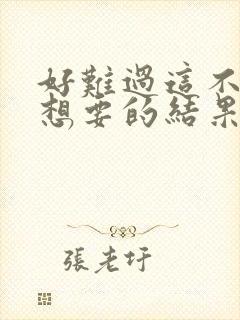 好難過這不
想要的結果
張老圩